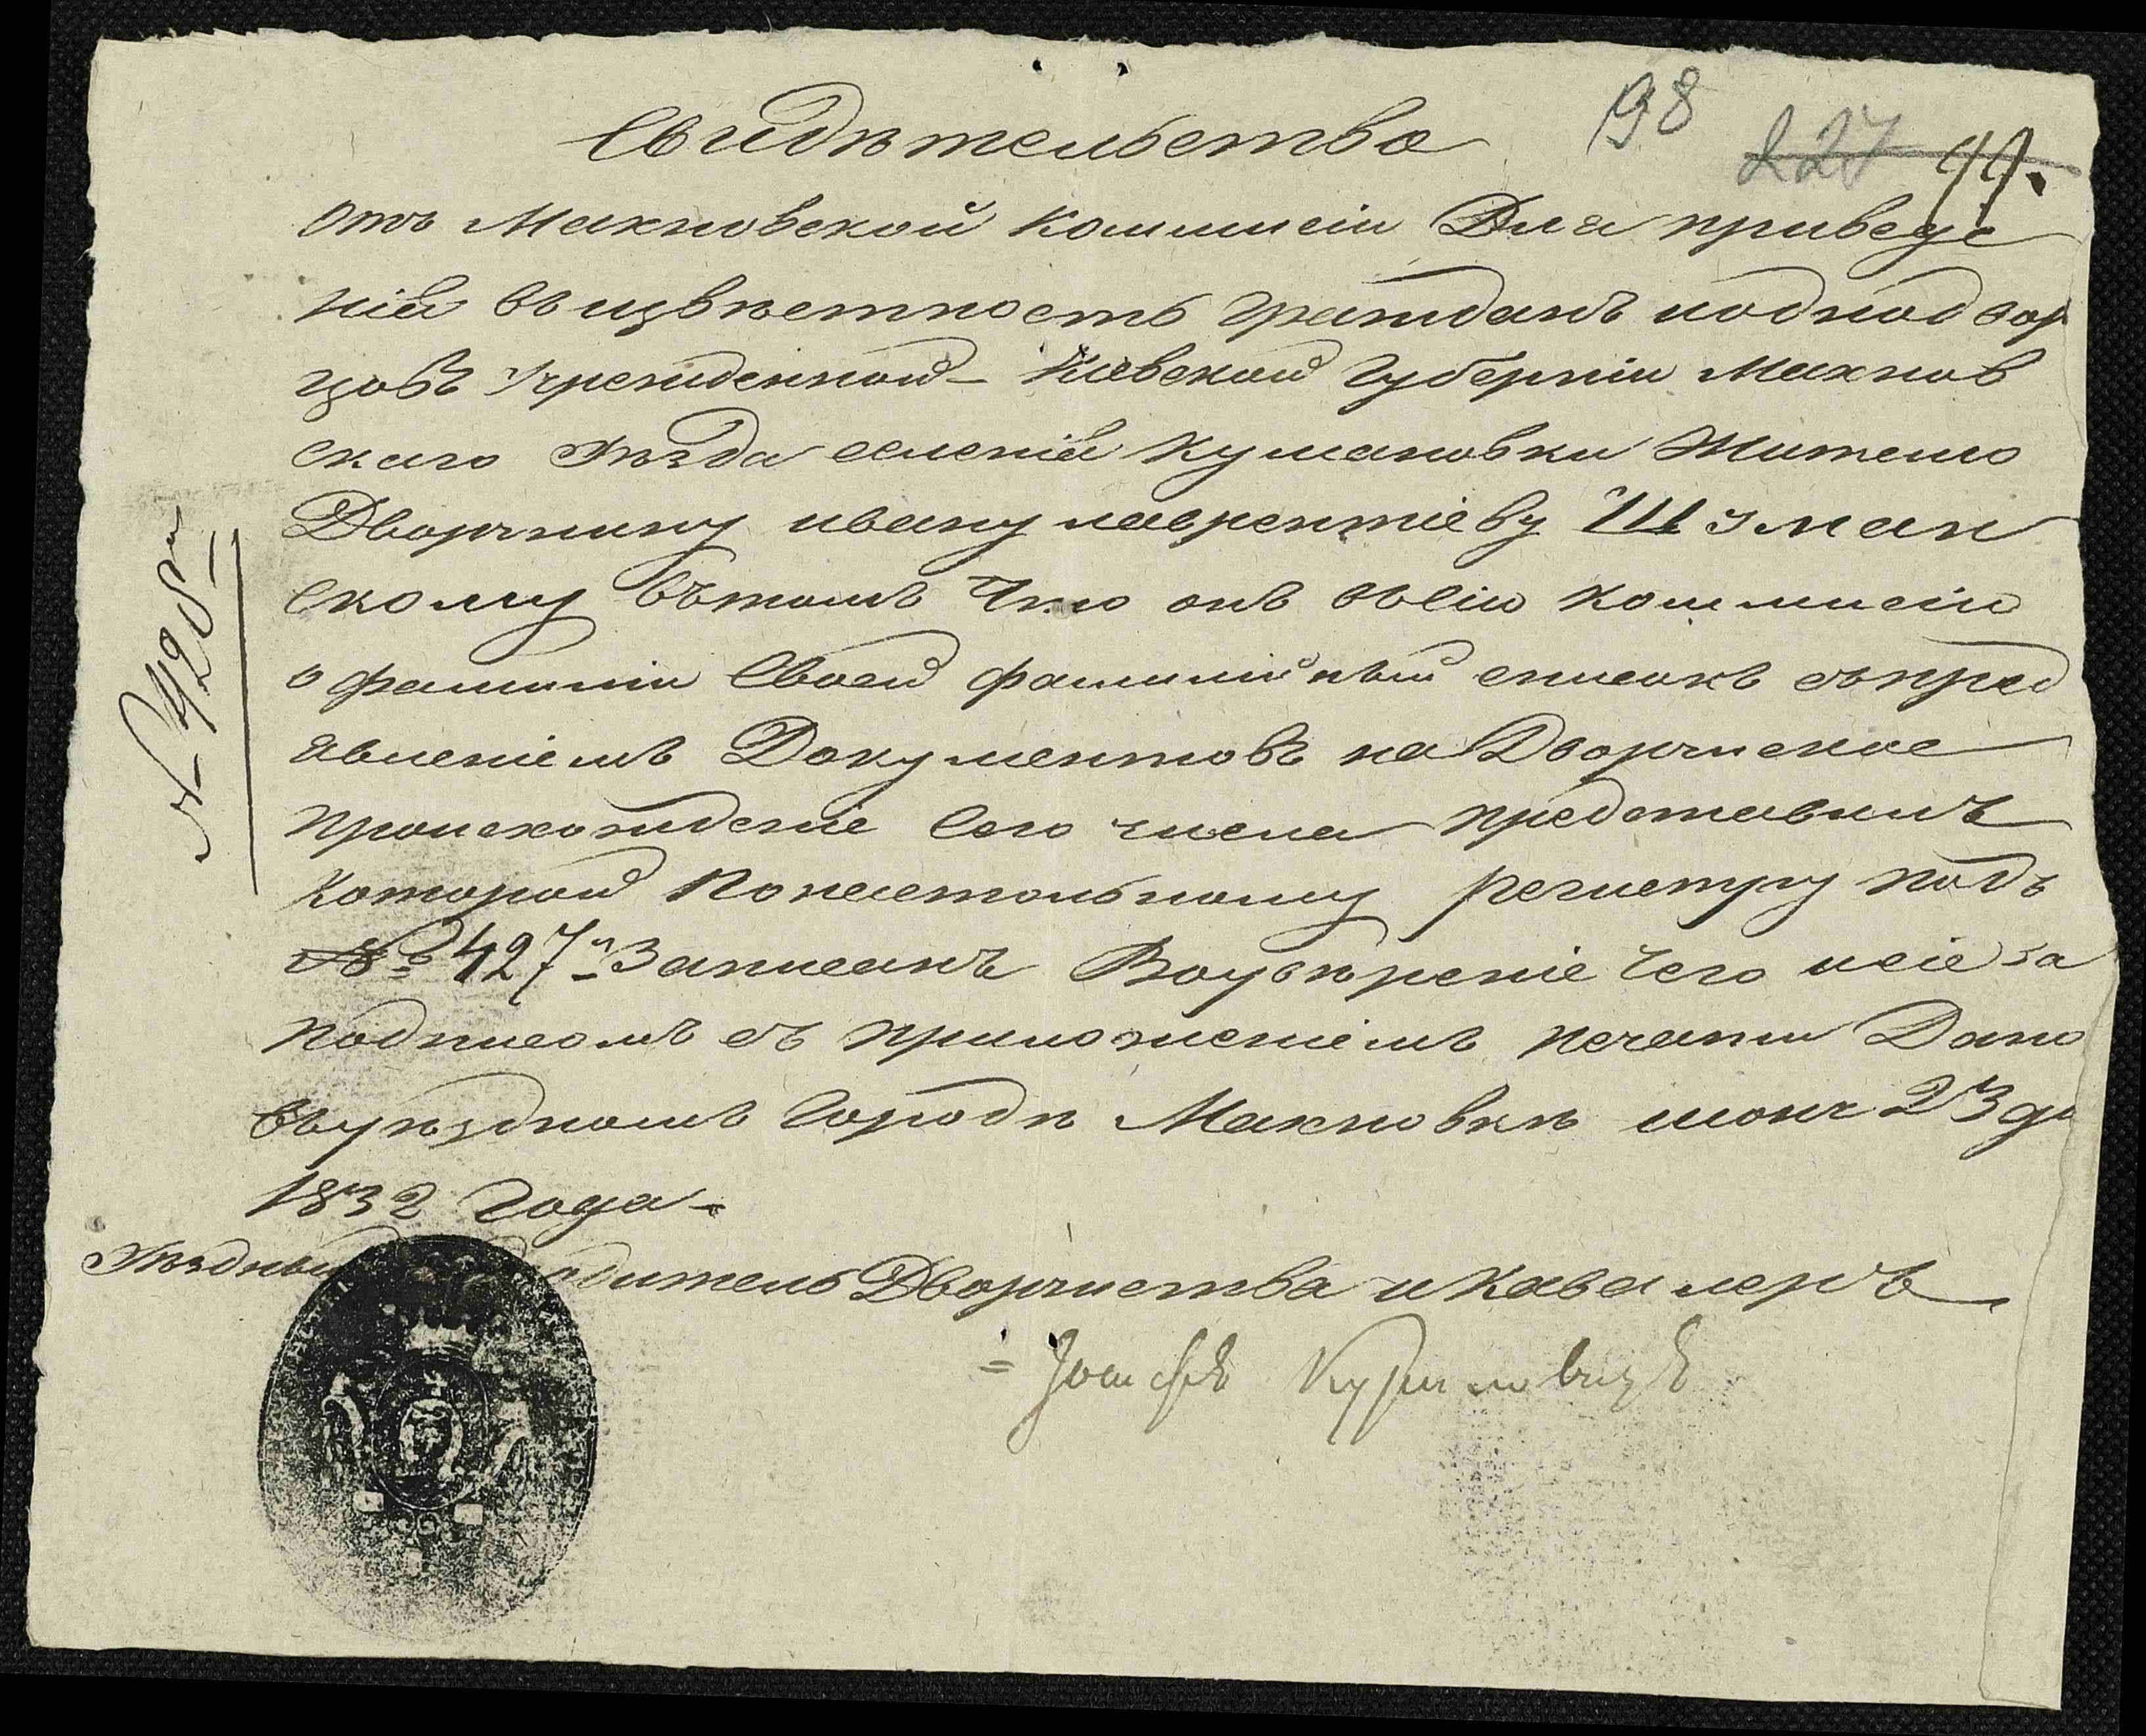 Свидѣтельство
198
227 99.
отъ Махновской коммисіи Для приведе
нія въ извѣстность гражданъ иоднодвор
цовъ Учрежденной – Кіевской губерніи Махнов
скаго Уѣзда селенія Кумановки Жителю
Дворянину ивану лаврентіеву Шуман
скому вътомъ Что онъ всію коммисію
о фамиліи Своей фамилійный списокъ съпред
явленіемъ Документовъ на Дворянское
происхожденіе Сего числа представилъ
которой Понастольному регистру подъ
№ 427м Записанъ Воувѣреніе Чего исіе за
подписомъ съ приложеніемъ печати Дано
въуѣздномъ Городѣ Махновкѣ июня 23 дн
1832 Года –
Уѣздный одитель Дворянства и Кавалеръ
= Іосифъ
№ 428м